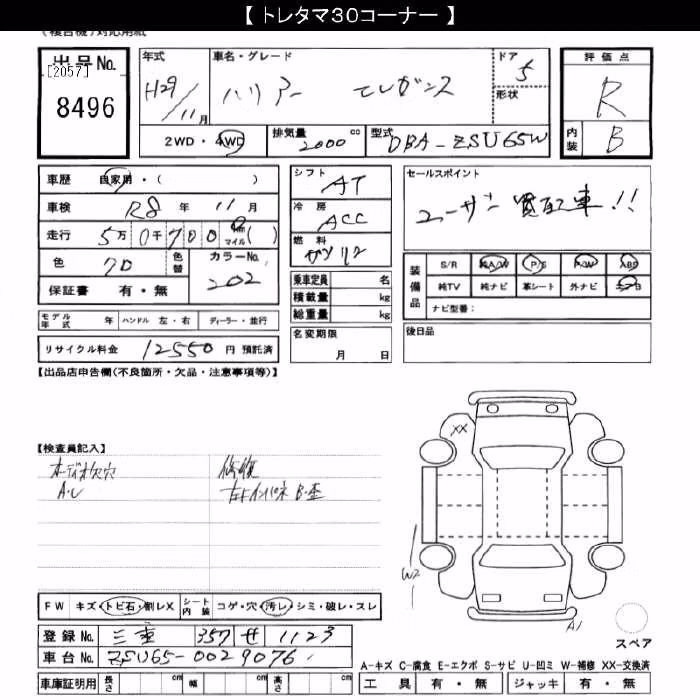 【 トレタマ30コーナー 】
(複合機)対応用紙
出品No. [2057] 8496
年式 H29/11月
車名・グレード ハリアー エレガンス
ドア 5
形状
評価点 R
内装 B
2WD・4WD
排気量 2000 cc
型式 DBA-ZSU65W
車歴 自家用・( )
車検 R8 年 11 月
走行 5万 0千 700 km マイル( )
色 クロ 色替 カラーNo. 202
保証書 有・無
シフト AT
冷房 ACC
燃料 ガソリン
乗車定員 名
積載量 kg
総重量 kg
名変期限 月 日
セールスポイント
ユーザー買取車!!
装備品 S/R 純A/W P/S P/W ABS
純TV 純ナビ 革シート 外ナビ エアB
ナビ型番:
後日品
モデル年式 年 ハンドル 左・右 ディーラー・並行
リサイクル料金 12550 円 預託済
【出品店申告欄(不良箇所・欠品・注意事項等)】
【検査員記入】
オーディオ欠穴
A・U
修復
B・歪
XX
W2
A1
スペア
FW キズ・トビ石・割レX シート内装 コゲ・穴・汚レ・シミ・破レ・スレ
登録No. 三重 357 せ 1123
車台No. ZSU65-0029076
A-キズ C-腐食 E-エクボ S-サビ U-凹ミ W-補修 XX-交換済
車庫証明用 長さ cm 幅 cm 高さ cm
工具 有・無 ジャッキ 有・無